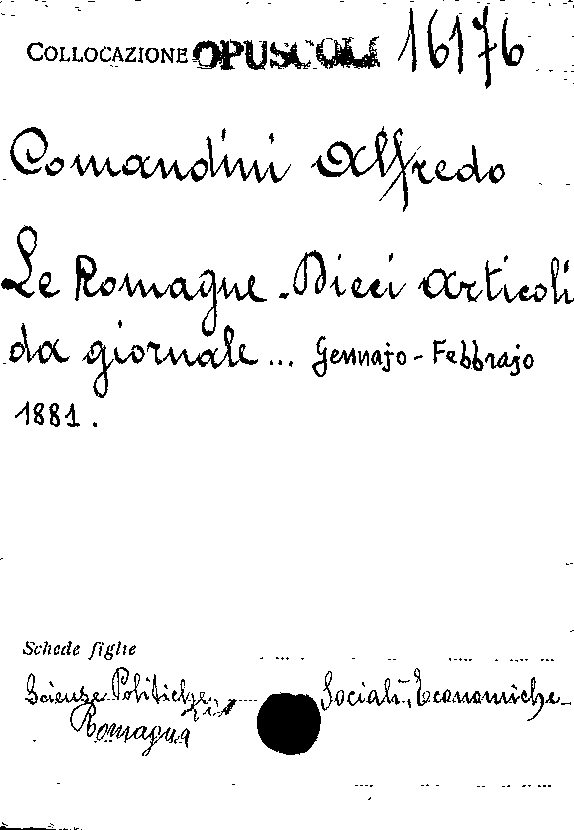 COLLOCAZIONE OPUSCOLI 16176
Comandini Alfredo
Le Romagne - Dieci articoli
da giornale ... Gennajo - Febbrajo
1881.
Schede figlie
Scienze Politiche Sociali, Economiche -
Romagna